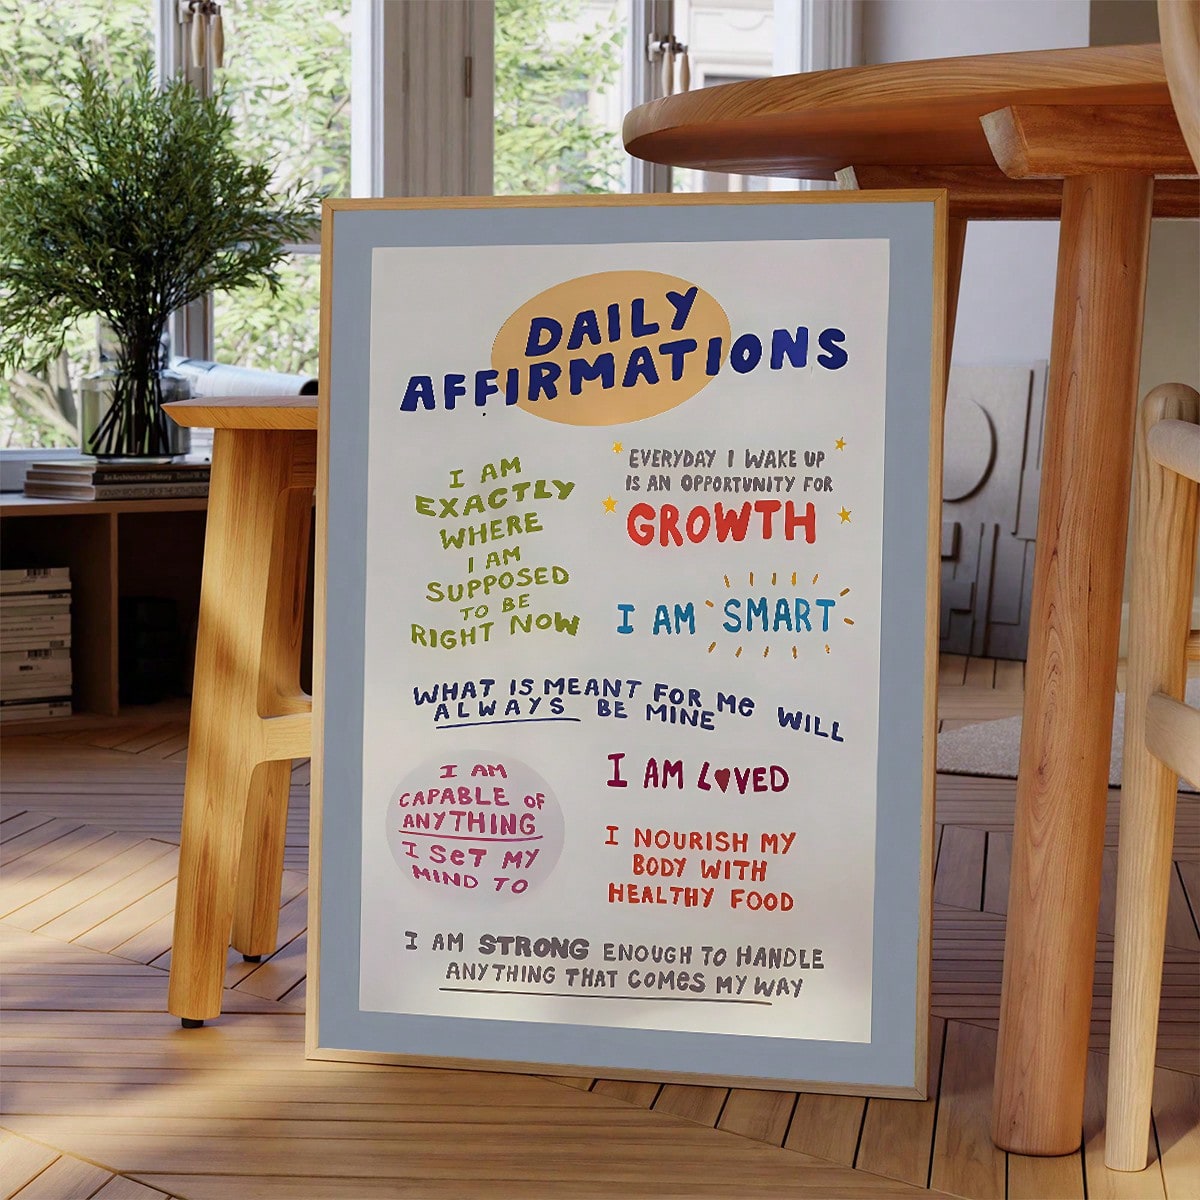 DAILY
AFFIRMATIONS
I AM
EXACTLY
WHERE
I AM
SUPPOSED
TO BE
RIGHT NOW
EVERYDAY I WAKE UP
IS AN OPPORTUNITY FOR
GROWTH
I AM SMART
WHAT IS MEANT FOR Me WILL
ALWAYS BE MINE
I AM
CAPABLE OF
ANYTHING
I SeT MY
MIND TO
I AM LOVED
I NOURISH MY
BODY WITH
HEALTHY FOOD
I AM STRONG ENOUGH TO HANDLE
ANYTHING THAT COMeS MY WAY
An Architectural History